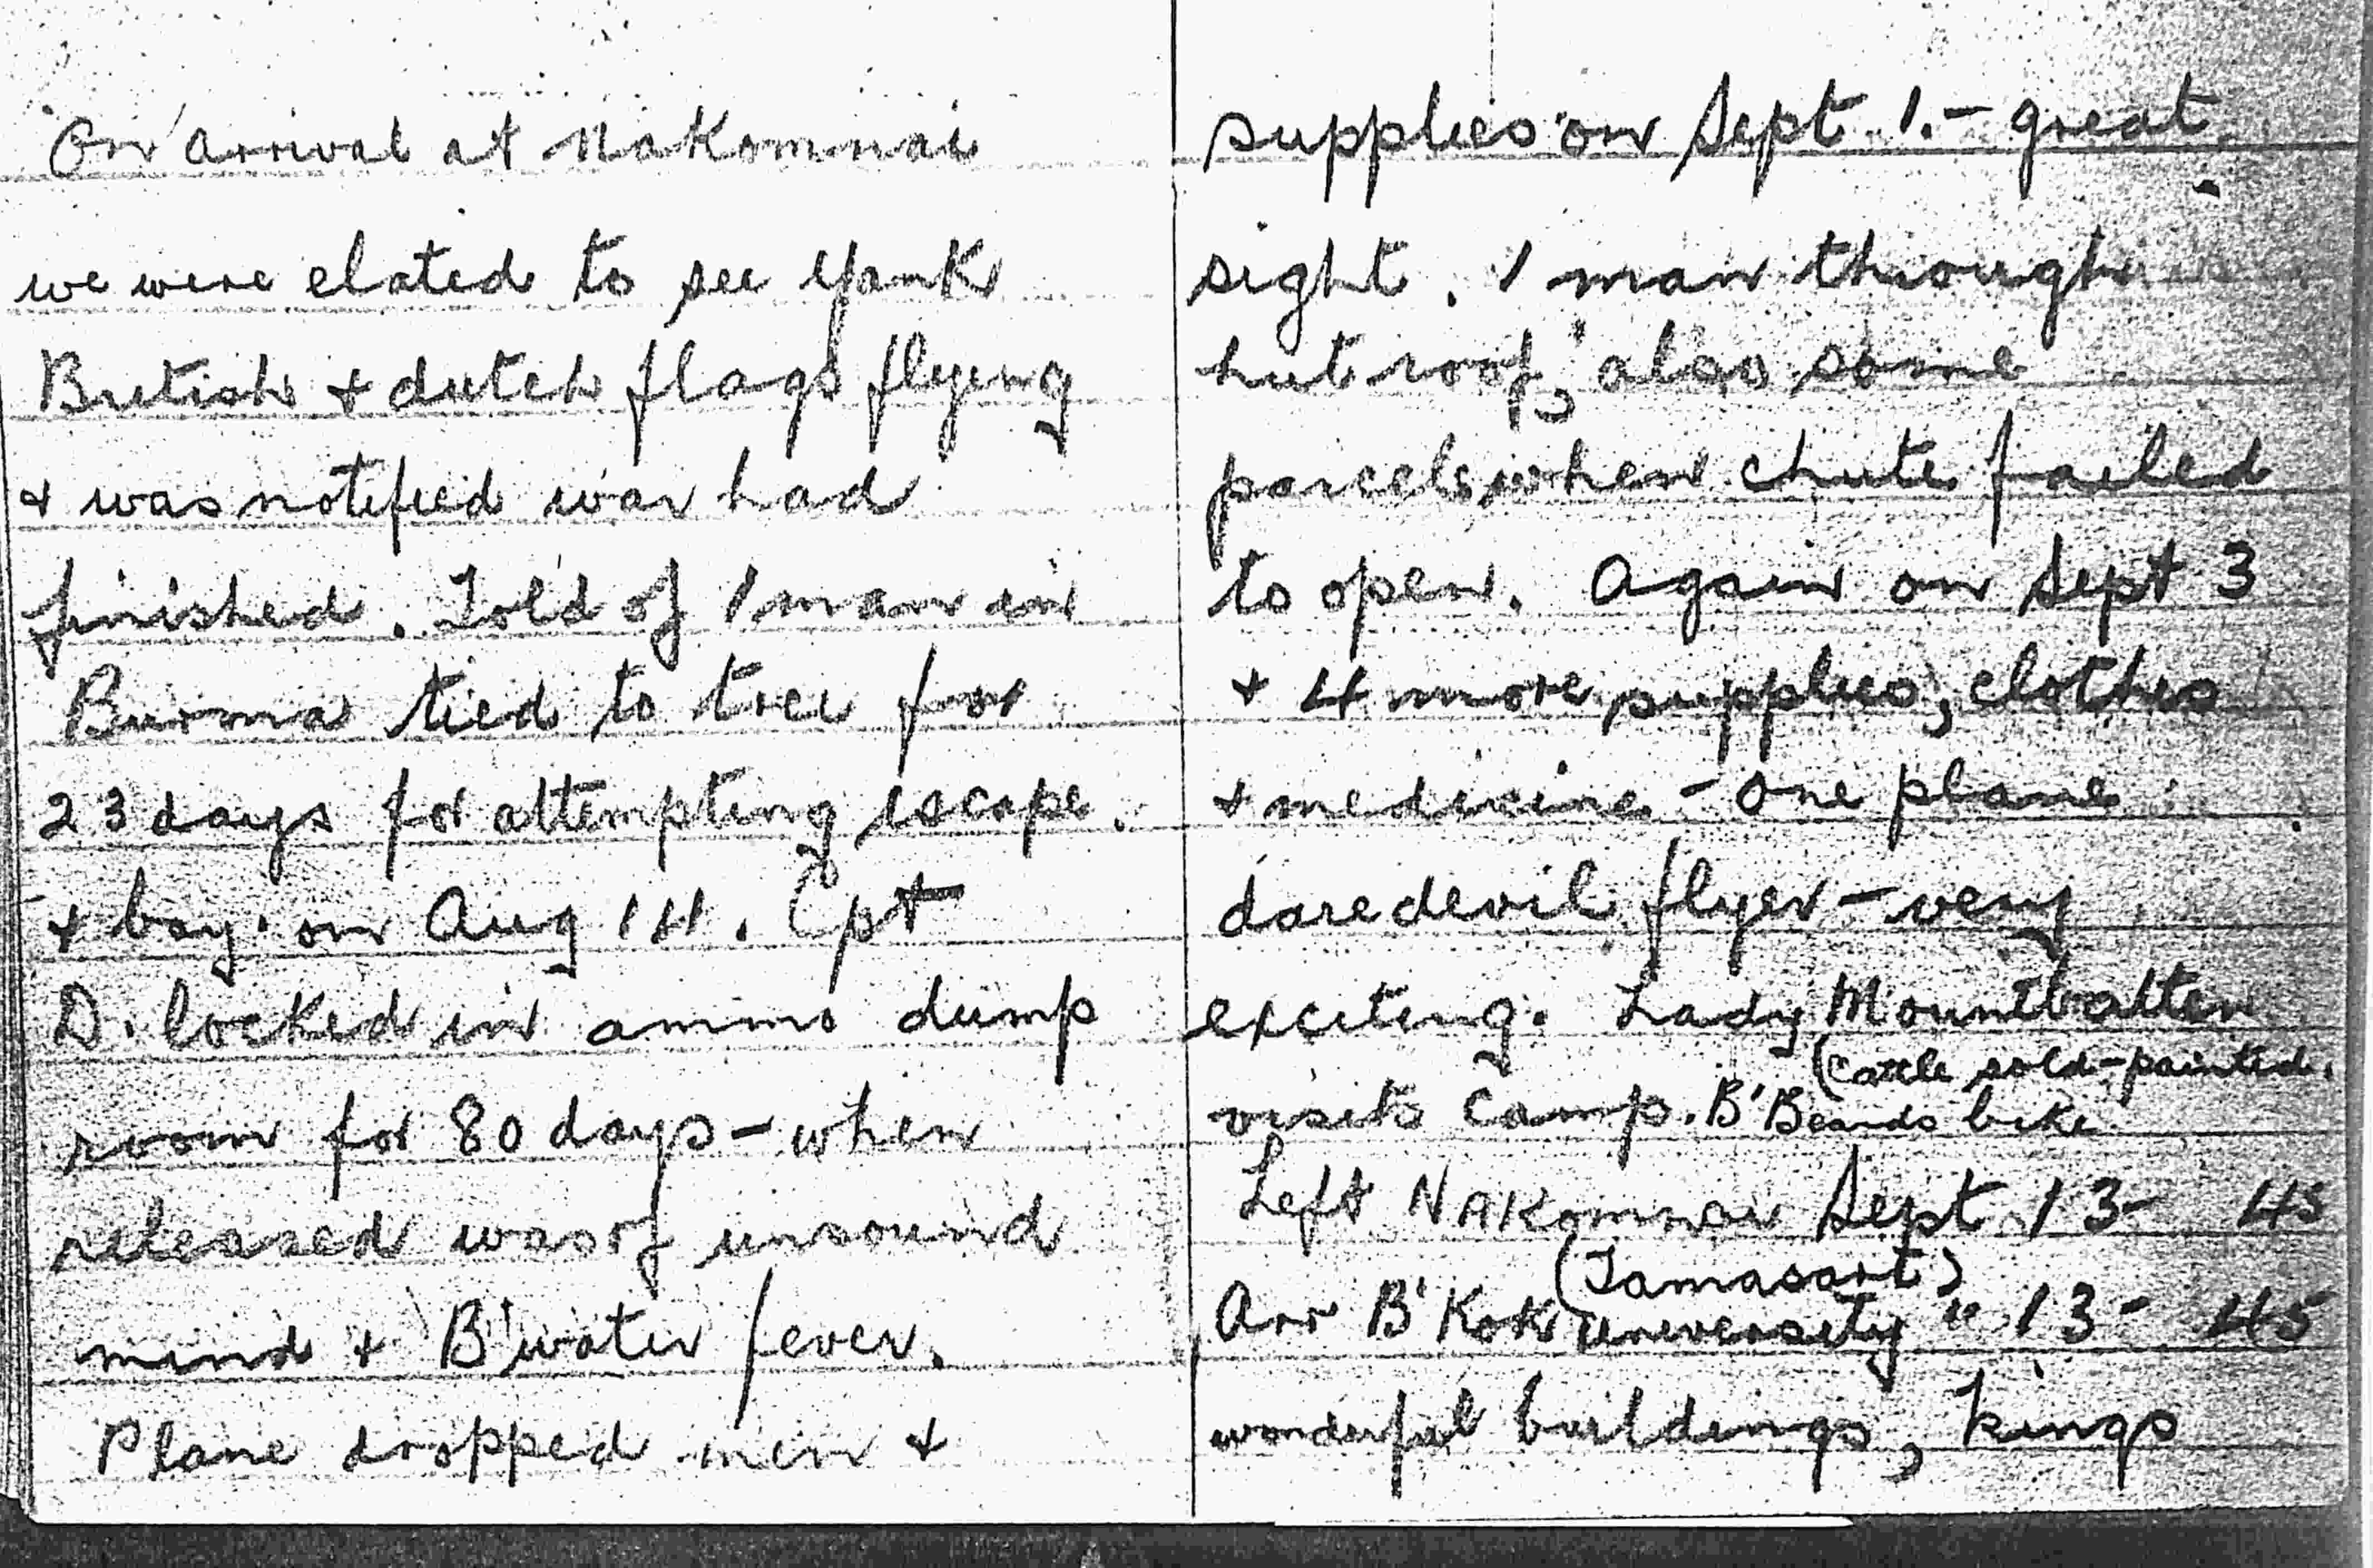 On arrival at Nakomnai
we were elated to see Yank
British + dutch flags flying
+ was notified war had
finished. Told of 1 man in
Burma tied to tree for
23 days for attempting escape.
+ bay. on Aug 14. Cpt
D. locked in ammo dump
room for 80 days - when
released was of unsound
mind + B'water fever.
Plane dropped men +
supplies on Sept 1. - great
sight. 1 man through
hut roof, also some
parcels when chute failed
to open. Again on Sept 3
+ 4 more supplies, clothes
+ medicine - One plane
daredevil flyer - very
exciting. Lady Mountbatten
(Cattle sold - painted.
visits Camp. B'Beards bike
Left NAKomnai Sept 13 - 45
(Tamasart)
Arr B'Kok University " 13 - 45
wonderful buildings, Kings